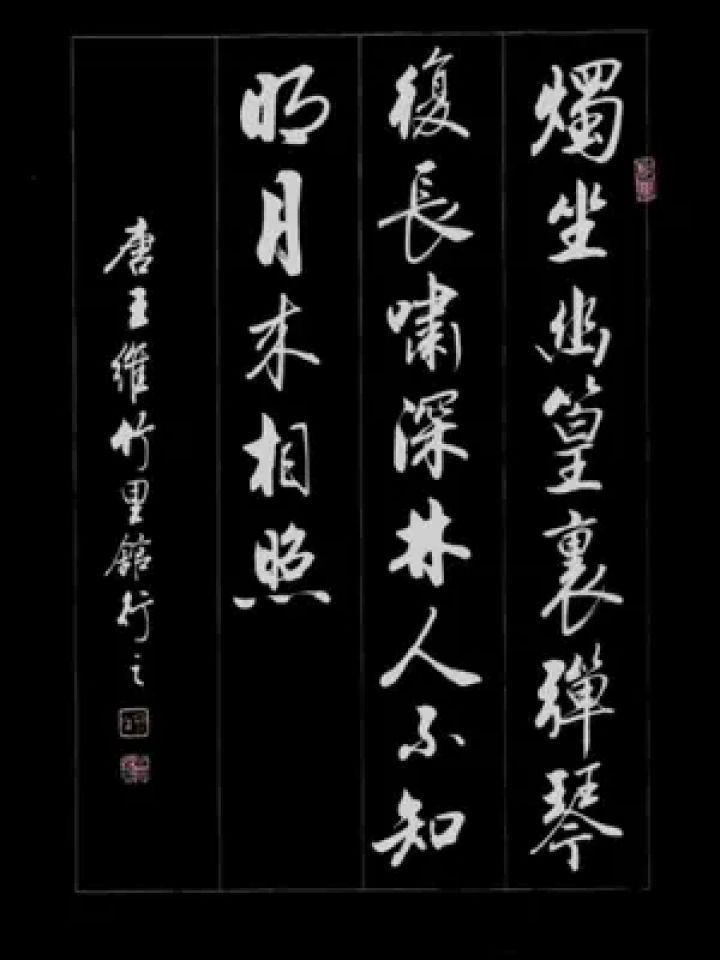 燭坐幽篁裏彈琴
復長嘯深林人不知
明月来相照
唐王維竹里館行之